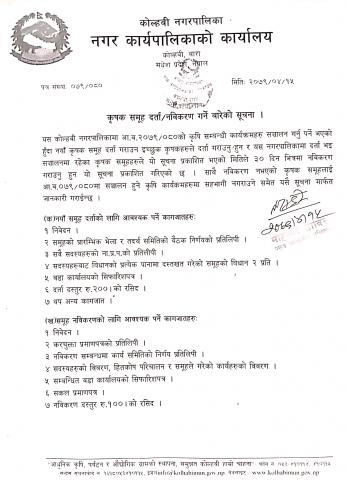 कोल्हवी नगरपालिका
नगर कार्यपालिकाको कार्यालय
कोल्हवी, बारा
मधेश प्रदेश, नेपाल
पत्र संख्याः ०७९/०८०
मितिः २०७९/०४/१५
कृषक समूह दर्ता/नविकरण गर्ने बारेको सूचना ।
यस कोल्हवी नगरपालिकामा आ.व.२०७९/०८०को कृषि सम्बन्धी कार्यक्रमहरु सञ्चालन गर्नु पर्ने भएको
हुँदा नयाँ कृषक समूह दर्ता गराउन इच्छुक कृषकहरुले दर्ता गराउनु हुन र यस नगरपालिकामा दर्ता भइ
सञ्चालनमा रहेका कृषक समूहहरुले यो सूचना प्रकाशित भएको मितिले ३० दिन भित्रमा नविकरण
गराउनु हुन यो सूचना प्रकाशित गरिएको छ । साथै नविकरण नभएको कृषक समूहलाई
आ.व.२०७९/०८०मा सञ्चालन हुने कृषि कार्यक्रमहरुमा सहभागी नगराउने समेत यसै सूचना मार्फत
जानकारी गराईन्छ ।
(क)नयाँ समूह दर्ताको लागि आवश्यक पर्ने कागजातहरुः
१ निवेदन ।
२ समूहको प्रारम्भिक भेला र तदर्थ समितिको बैठक निर्णयको प्रतिलिपी ।
३ सबै सदस्यहरुको ना.प्र.प.को प्रतिलीपी ।
४ सदस्यहरुबाट विधानको प्रत्येक पानामा दस्तखत गरेको समूहको विधान २ प्रति ।
५ वडा कार्यालयको सिफारिशपत्र ।
६ दर्ता दस्तुर रु.२००।को रसिद ।
७ थप अन्य कागजात ।
(ख)समूह नविकरणको लागि आवश्यक पर्ने कागजातहरुः
१ निवेदन ।
२ करचुक्ता प्रमाणपत्रको प्रतिलिपी ।
३ नविकरण सम्बन्धमा कार्य समितिको निर्णय प्रतिलिपी ।
४ सदस्यहरुको विवरण, हितकोष परिचालन र समूहले गरेको कार्यहरुको विवरण ।
५ सम्बन्धित वडा कार्यालयको सिफारिशपत्र ।
६ सक्कल प्रमाणपत्र ।
७ नविकरण दस्तुर रु.१००।को रसिद ।
"आधुनिक कृषि, पर्यटन र औद्योगिक ग्रामको स्थापना, समुन्नत कोल्हवी हाम्रो चाहना"
www.kolhabimun.gov.np